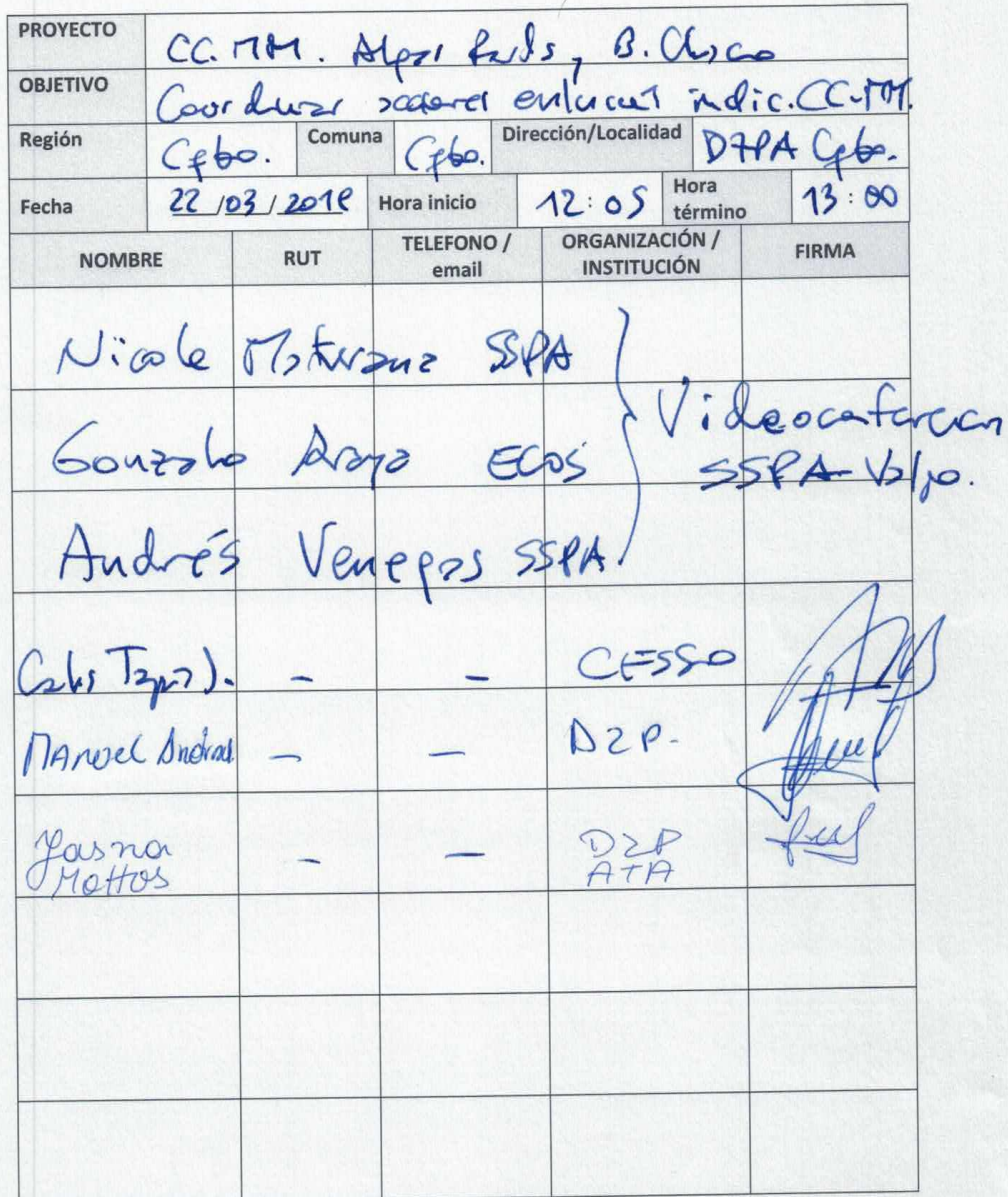 PROYECTO CC.MM. Algas Pardas, B. Chasco
OBJETIVO Coordinar acciones indic. CC.MM.
Región Cpbo. Comuna Cpbo. Dirección/Localidad DZPA Cpbo.
Fecha 22/03/2018 Hora inicio 12:05 Hora término 13:00
NOMBRE RUT TELEFONO / email ORGANIZACIÓN / INSTITUCIÓN FIRMA
Nicole Maturana SSPA
Videoconferencia
Gonzalo Araya ECOS SSPA-Valpo.
Andrés Venegas SSPA
Carlos Tapia J. - - CESSO
Manuel Andrade - - DZP.
Yasna Mattos - - DZP ATA